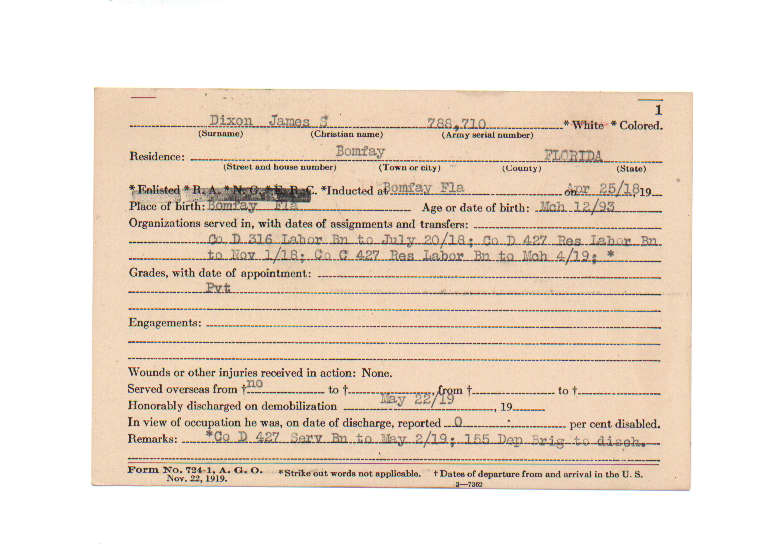 1
Dixon James S 788,710 * White * Colored.
(Surname) (Christian name) (Army serial number)
Residence: Bomfay FLORIDA
(Street and house number) (Town or city) (County) (State)
* Enlisted * R. A. * N. G. * E. R. C. *Inducted at Bomfay Fla on Apr 25/18 19
Place of birth: Bomfay Fla Age or date of birth: Mch 12/93
Organizations served in, with dates of assignments and transfers:
Co D 316 Labor Bn to July 20/18; Co D 427 Res Labor Bn
to Nov 1/18; Co C 427 Res Labor Bn to Mch 4/19; *
Grades, with date of appointment:
Pvt
Engagements:
Wounds or other injuries received in action: None.
Served overseas from † no to † from † to †
Honorably discharged on demobilization May 22/19, 19
In view of occupation he was, on date of discharge, reported 0 per cent disabled.
Remarks: *Co D 427 Serv Bn to May 2/19; 155 Dep Brig to disch.
Form No. 724-1, A. G. O. *Strike out words not applicable. † Dates of departure from and arrival in the U. S.
Nov. 22, 1919. 3—7362